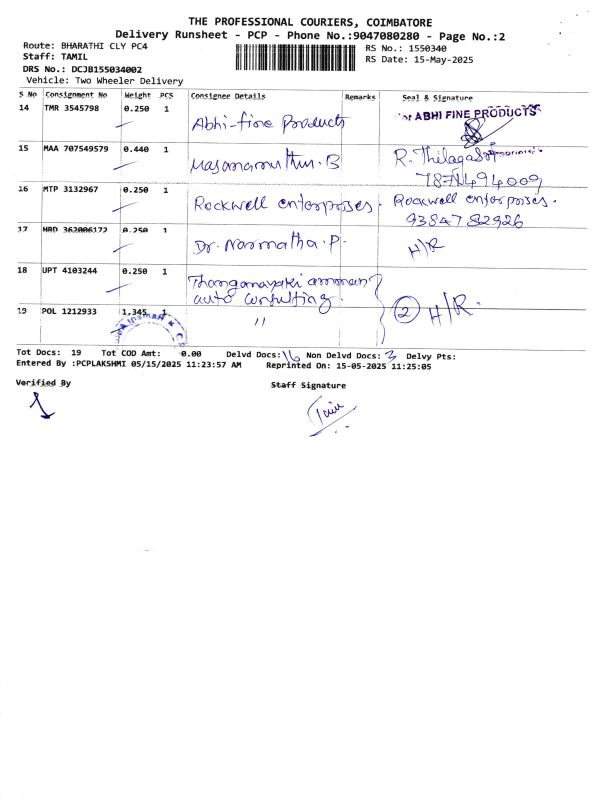 THE PROFESSIONAL COURIERS, COIMBATORE
Delivery Runsheet - PCP - Phone No.:9047080280 - Page No.:2
Route: BHARATHI CLY PC4 RS No.: 1550340
Staff: TAMIL RS Date: 15-May-2025
DRS No.: DCJB155034002
Vehicle: Two Wheeler Delivery
S No Consignment No Weight PCS Consignee Details Remarks Seal & Signature
14 TMR 3545798 0.250 1 Abhi-fine Products For ABHI FINE PRODUCTS
15 MAA 707549579 0.440 1 R. Thilaga
16 MTP 3132967 0.250 1 Rockwell enterprises. Rockwell enterprises.
9384782926
17 HRD 362006172 0.250 1 Dr. Narmatha. P. H/R
18 UPT 4103244 0.250 1 Thanganayaki amman
auto consulting.
19 POL 1212933 1.345 1 " 2 H/R.
Tot Docs: 19 Tot COD Amt: 0.00 Delvd Docs: 16 Non Delvd Docs: 3 Delvy Pts:
Entered By :PCPLAKSHMI 05/15/2025 11:23:57 AM Reprinted On: 15-05-2025 11:25:05
Verified By Staff Signature